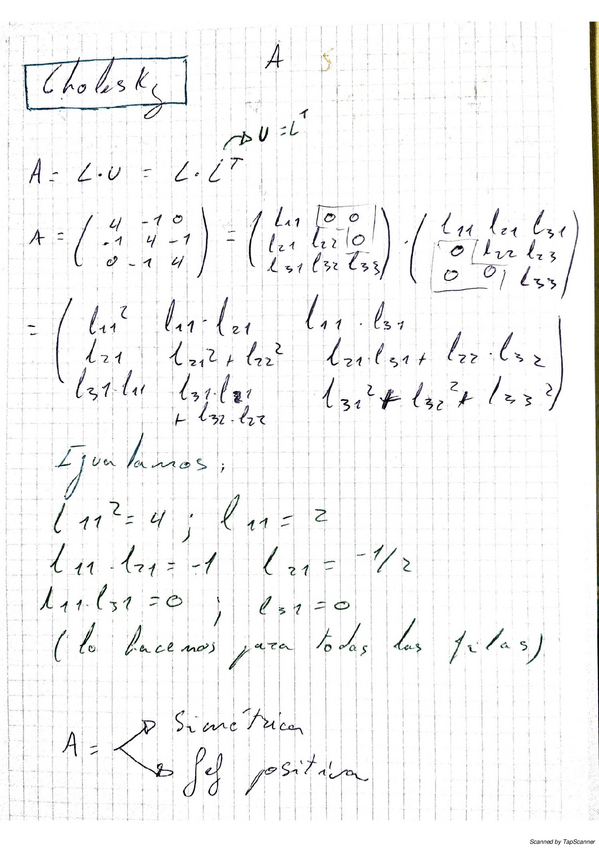 A
Cholesky
U = L^T
A = L·U = L·L^T
A = ( 4 -1 0 ) = ( l11 0 0 ) · ( l11 l21 l31 )
( -1 4 -1 ) ( l21 l22 0 ) ( 0 l22 l23 )
( 0 -1 4 ) ( l31 l32 l33 ) ( 0 0 l33 )
= ( l11² l11·l21 l11·l31
l21 l21² + l22² l21·l31 + l22·l32
l31·l11 l31·l21 l31² + l32² + l33² )
+ l32·l22
Igualamos;
l11² = 4 ; l11 = 2
l11·l21 = -1 l21 = -1/2
l11·l31 = 0 ; l31 = 0
(lo hacemos para todas las filas)
Simétrica
A =
def positiva
Scanned by TapScanner